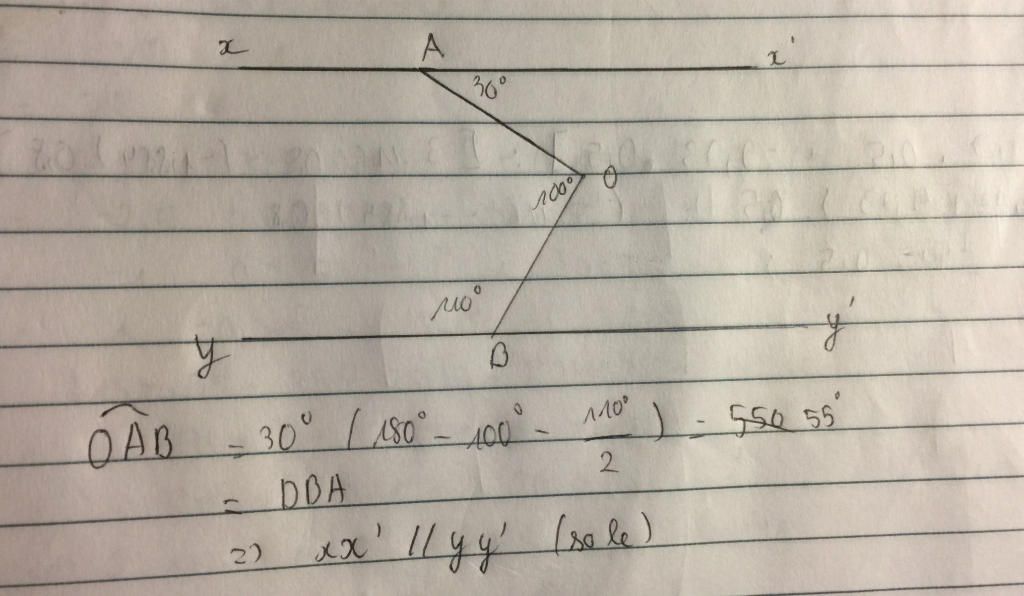 x A x'
30°
100° O
110°
y B y'
OAB = 30° (180° - 100° - 110°/2) = 550 55°
= OBA
=> xx' // yy' (so le)